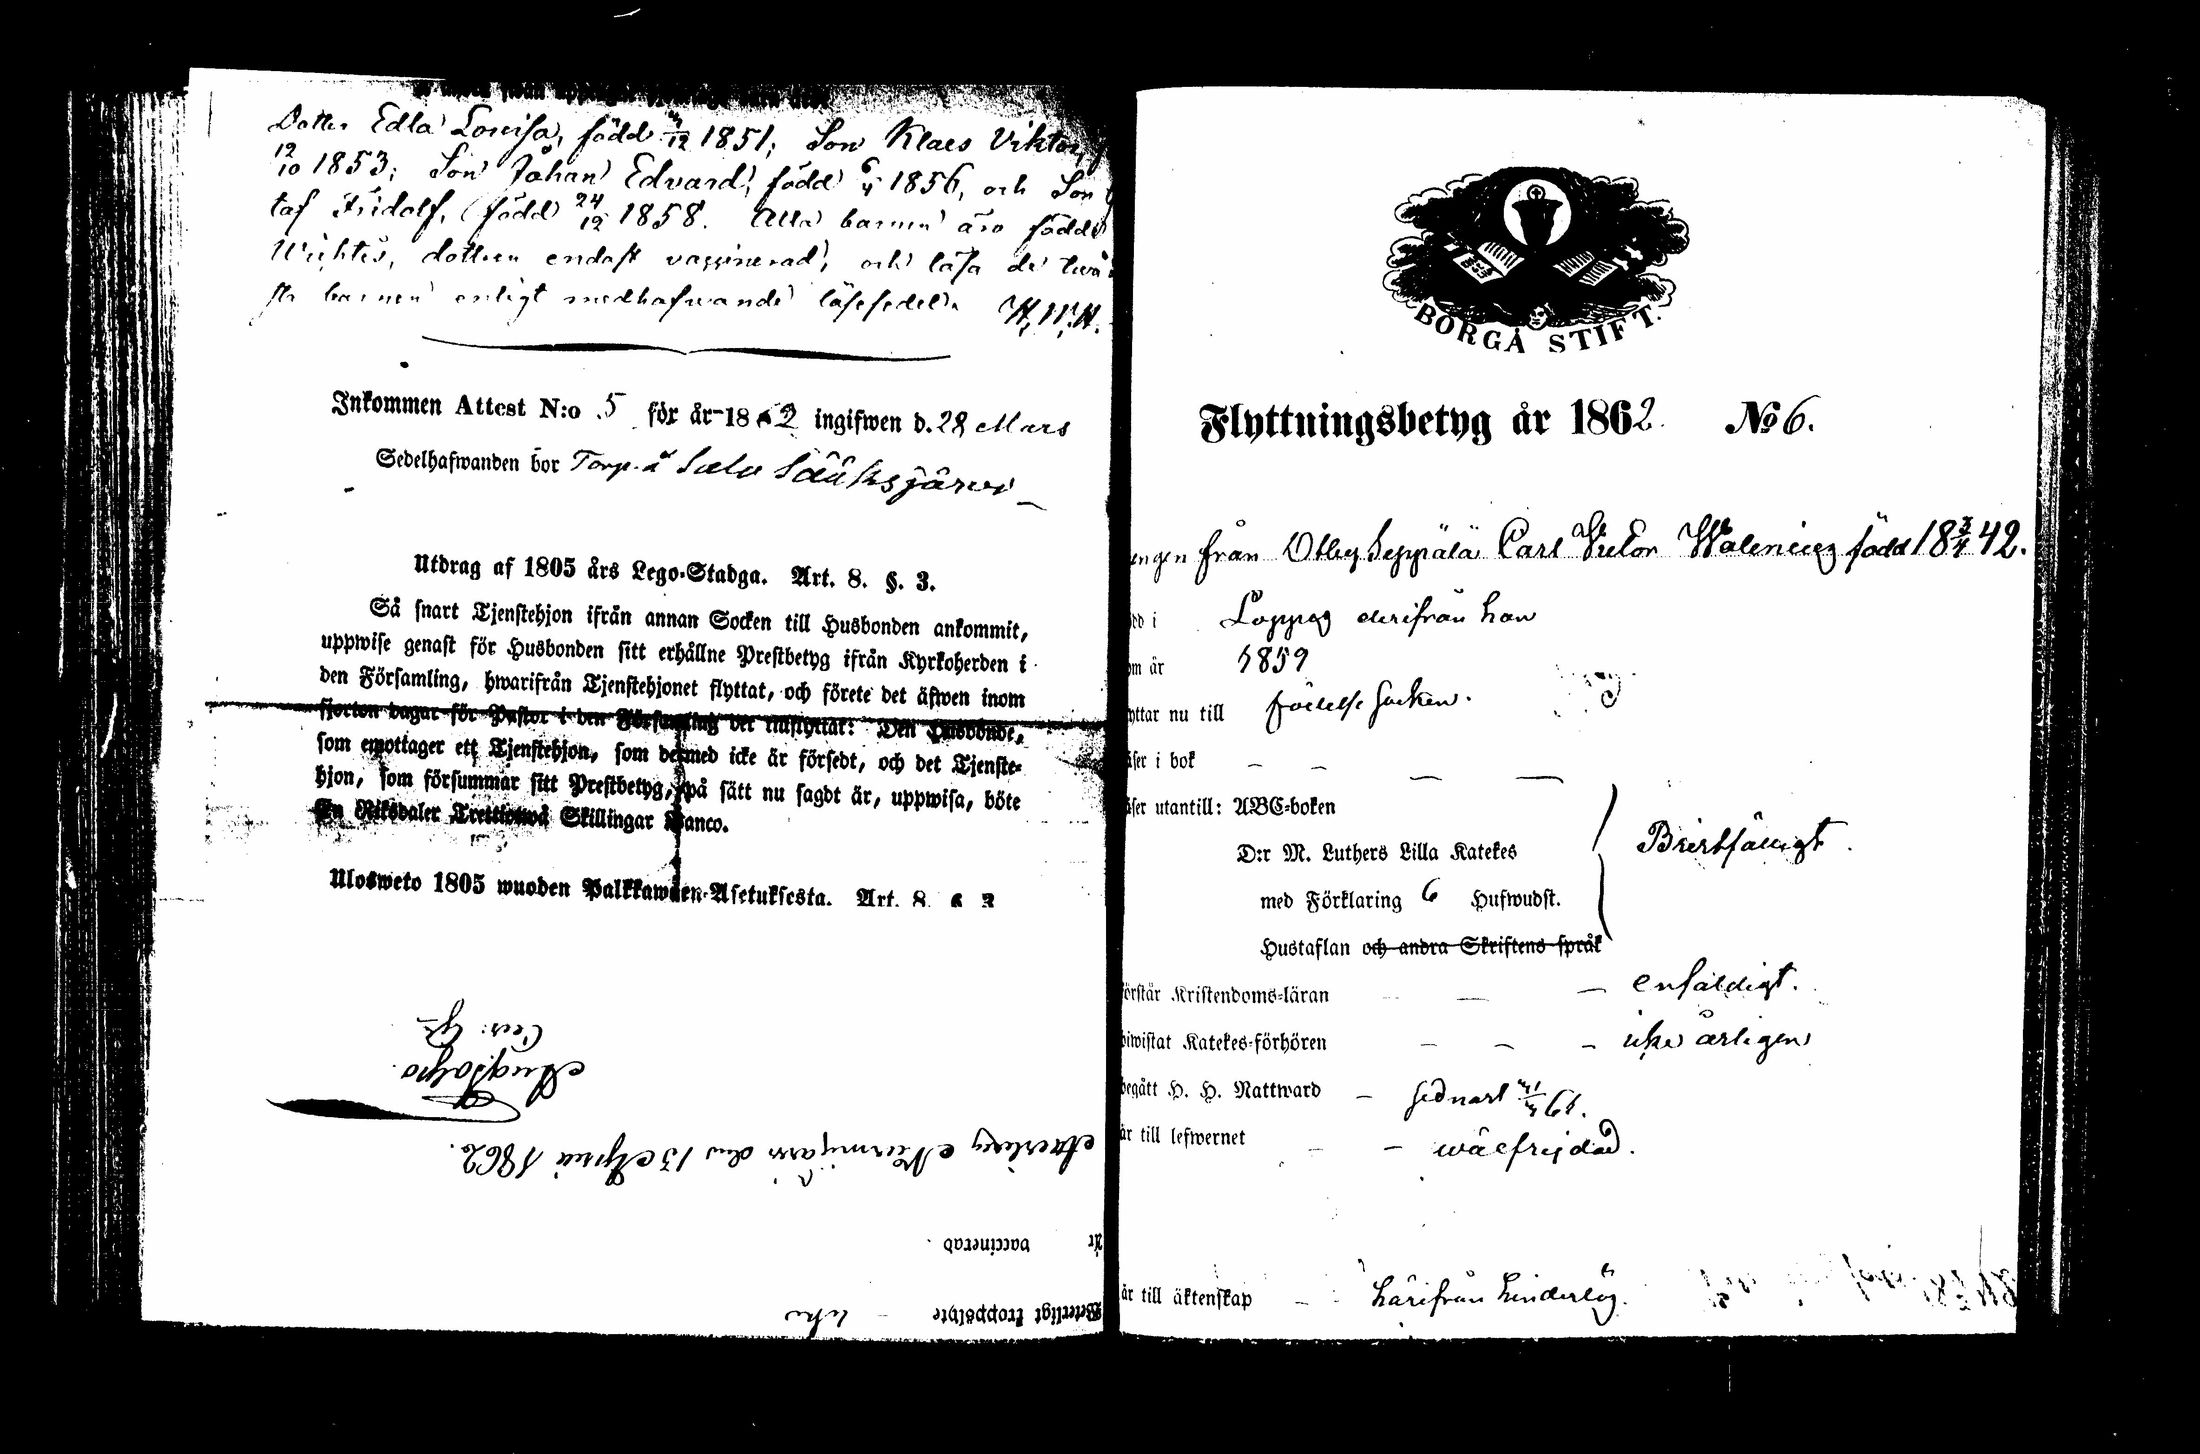 Dotter Edla Lovisa, född 1851; Son Klaes Viktor,
12/10 1853; Son Johan Edvard, född 6/4 1856, och Son
taf Fridolf, född 24/12 1858. Alla barnen äro födde
Wichtis, dottren endast vaccinerad, och läsa de två
sta barnen enligt medhafvande läsesedel. H.W.H.
Inkommen Attest N:o 5 för år 1862 ingifwen d. 28 Mars
Sedelhafwanden bor Torp. å Salo Sääksjärvi
Utdrag af 1805 års Lego-Stadga. Art. 8. §. 3.
Så snart Tjenstehjon ifrån annan Socken till Husbonden ankommit,
uppwise genast för Husbonden sitt erhållne Prestbetyg ifrån Kyrkoherden i
den Församling, hwarifrån Tjenstehjonet flyttat, och förete det äfwen inom
fjorton dagar för Pastor i den Församling det tillflyttat: Den Husbonde,
som emottager ett Tjenstehjon, som dermed icke är försedt, och det Tjenste-
hjon, som försummar sitt Prestbetyg, på sätt nu sagdt är, uppwisa, böte
En Riksdaler Trettiotwå Skillingar Banco.
Ulosweto 1805 wuoden Palkkawäen-Asetuksesta. Art. 8. § 3
Wederligt kroppslyte – icke
Är vaccinerad.
Nurmijärvi den 13 April 1862.
BORGÅ STIFT.
Flyttningsbetyg år 1862. No 6.
ngen från Ollby Seppälä Carl Victor Walenius född 18 3/4 42.
dd i Loppis derifrån han
om år 1859
yttar nu till födelse socken.
äser i bok – – – –
äser utantill: ABC-boken
D:r M. Luthers Lilla Katekes
med Förklaring 6 Hufwudst.
Hustaflan och andra Skriftens språk
Bristfälligt.
örstår Kristendoms-läran – – enfaldigt.
biwistat Katekes-förhören – – – icke årligen
begått H. H. Nattward – sednast 61.
är till lefwernet – – wälfrejdad.
är till äktenskap – – härifrån hinderlös.